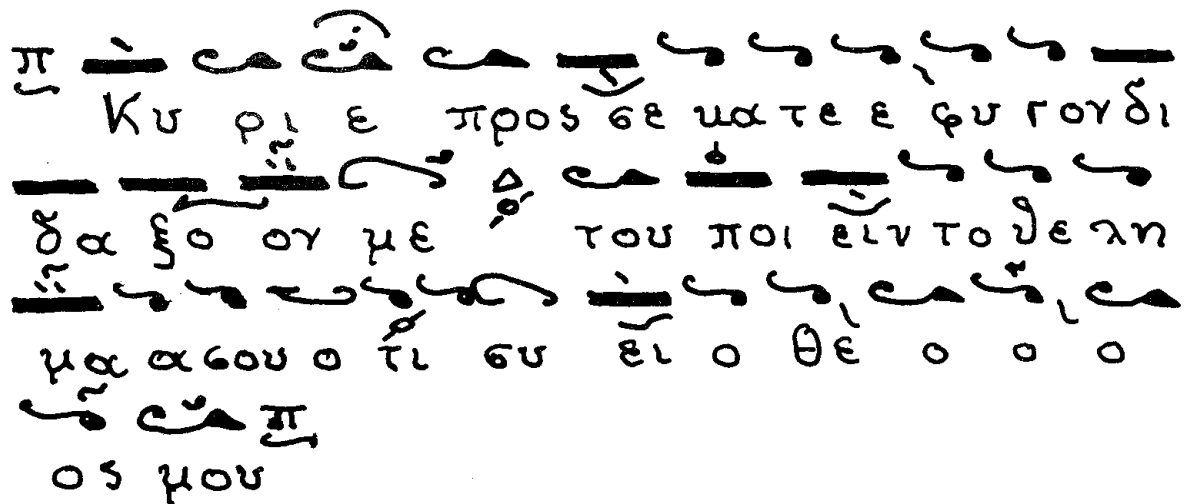 π
Κυ ρι ε προς σε κα τε ε φυ γον δι
Δ
δα ξο ον με του ποι ειν το θε λη
μα α σου ο τι συ ει ο Θε ο ο ο
π
ος μου